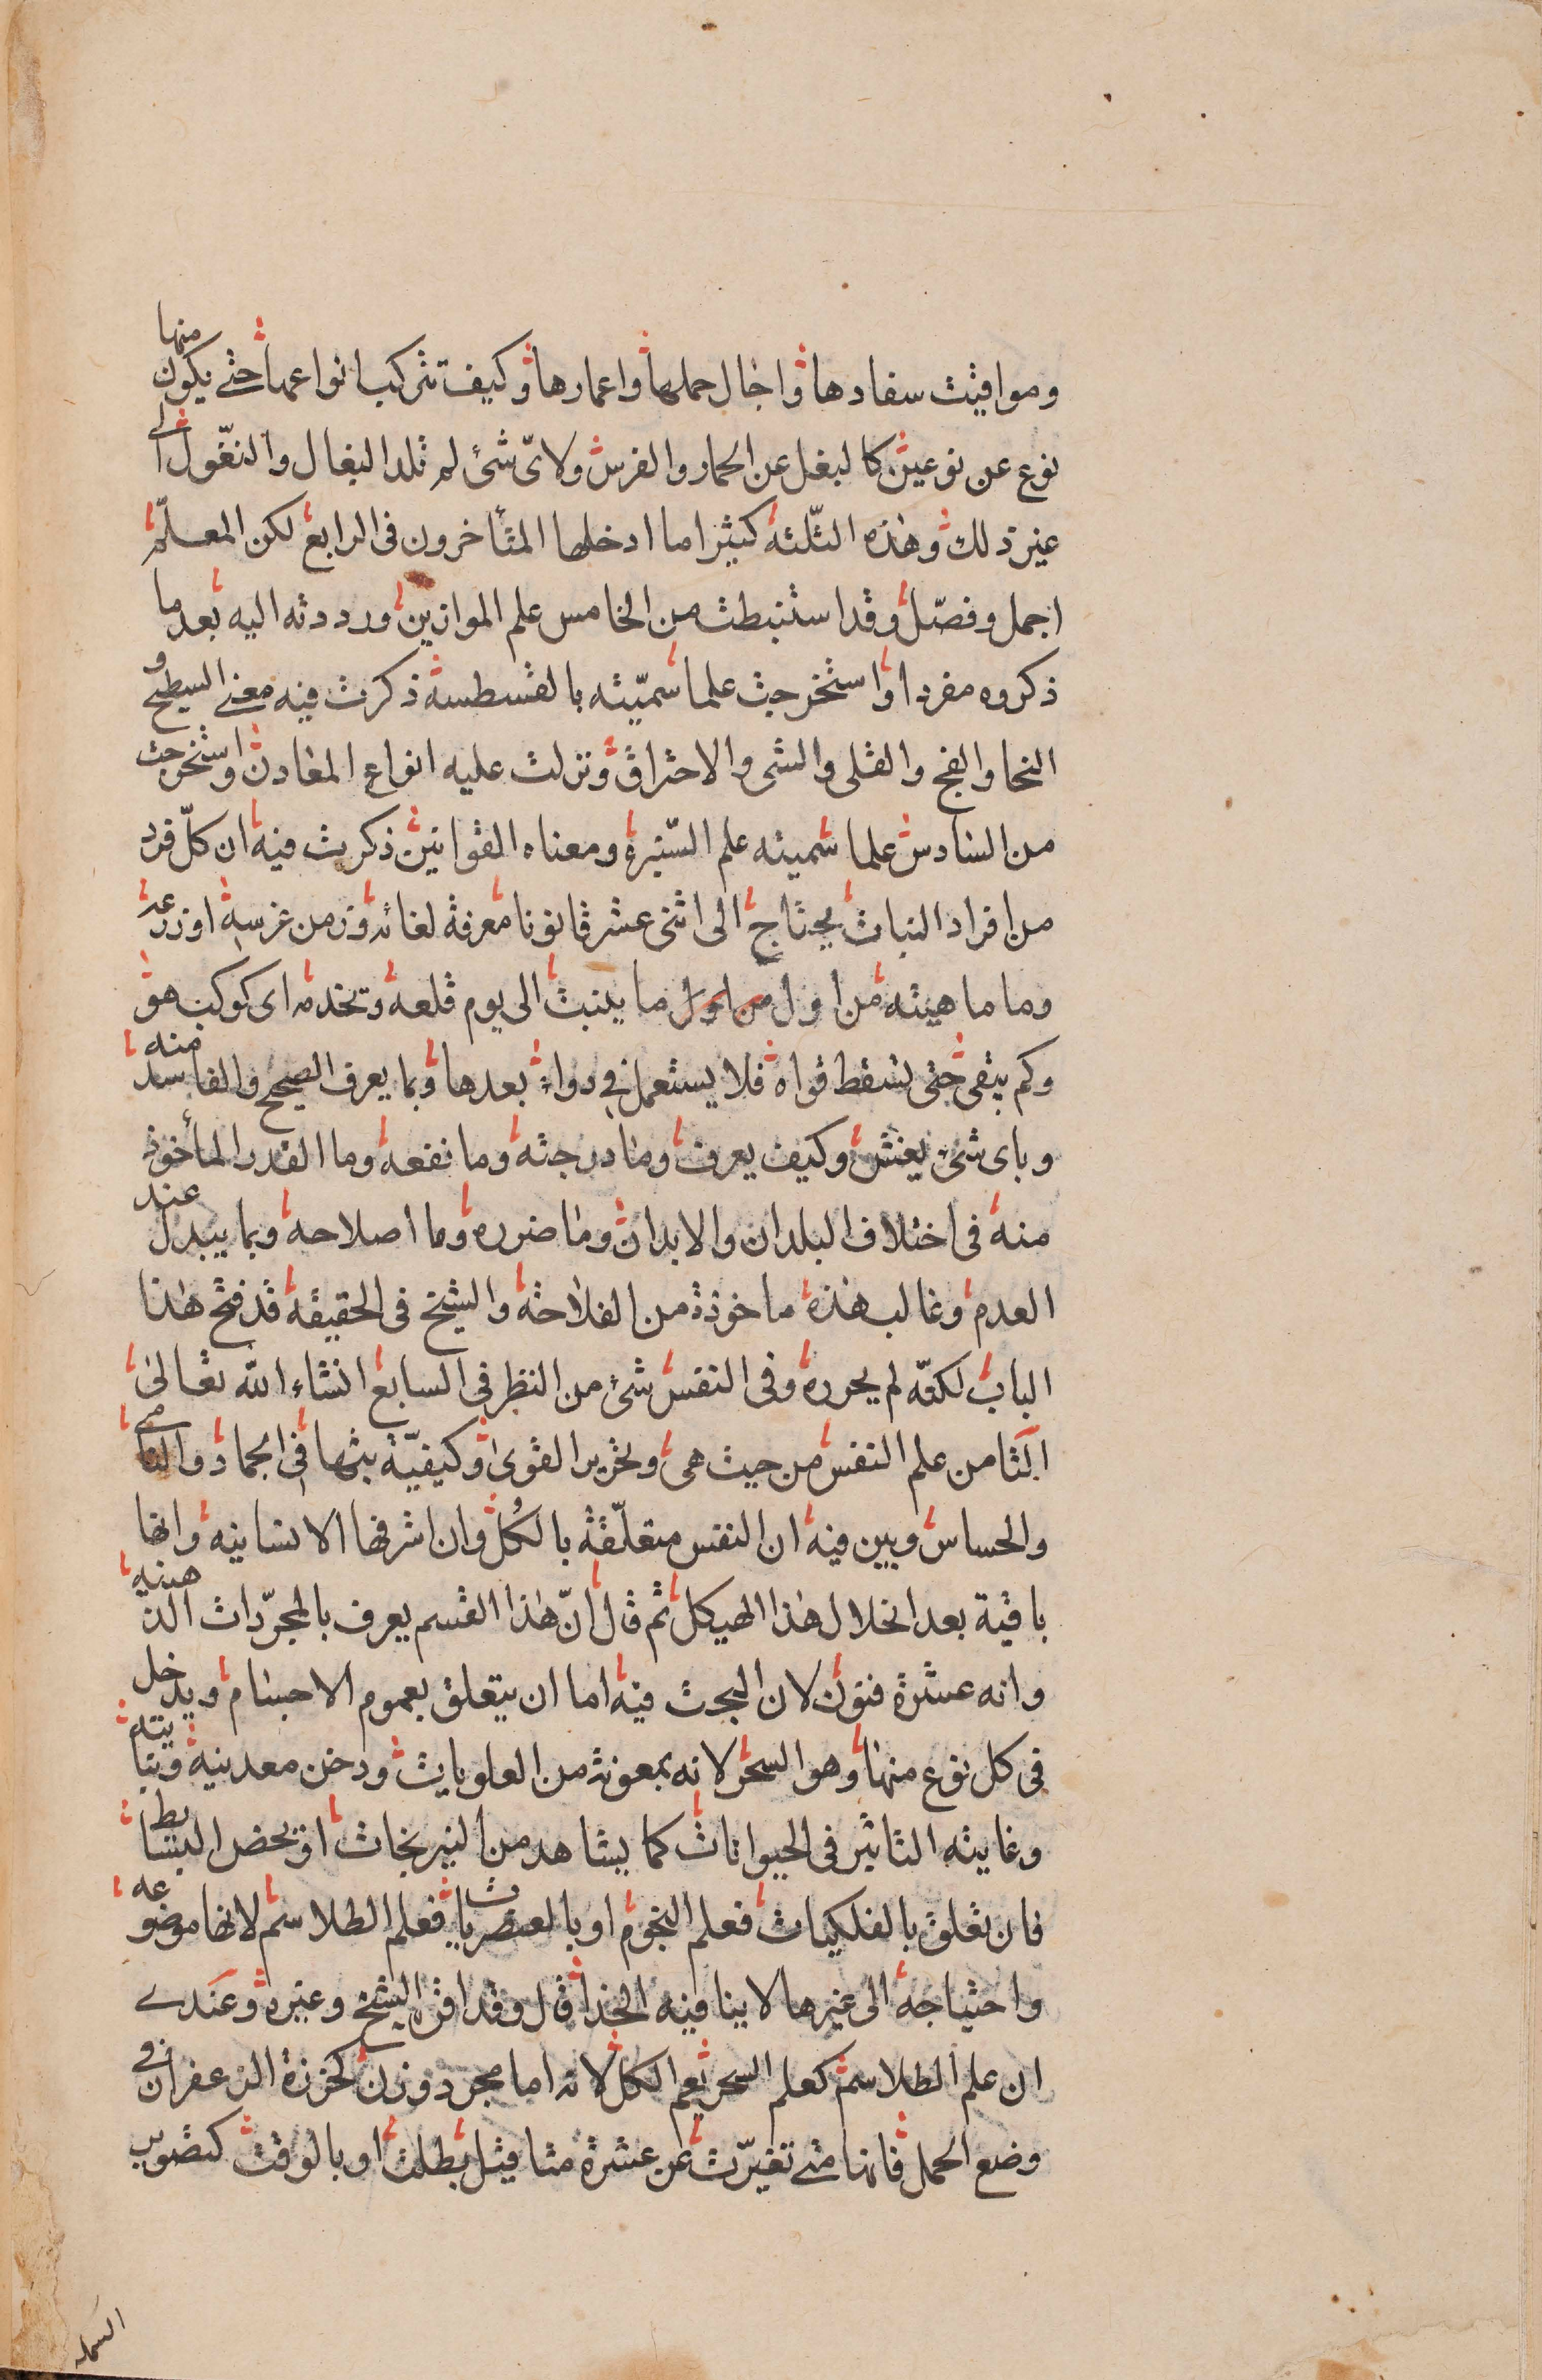 ومواقيت سفادها واجال حملها واعمارها وكيف تتركب انواعها حتى يكون منها
نوع عن نوعين كالبغل عن الحمار والفرس ولاىّ شئ لم تلد البغال والنغول الى
غير ذلك وهذه الثّلثة كثيرا ما ادخلها المتأخرون فى الرابع لكن المعلّم
اجمل وفصّل وقد استنبطت من الخامس علم الموازين ورددته اليه بعد ما
ذكروه مفردا واستخرجت علما سمّيته بالقسطسة ذكرت فيه معنى السطيح و
النحا والفج والقلى والشى والاحتراق ونزلت عليه انواع المعادن واستخرجت
من السادس علما سميته علم السّيرة ومعناه القوانين ذكرت فيه ان كلّ فرد
من افراد النبات يحتاج الى اثنى عشر قانونا معرفة لغاته وزمن غرسه او زرعه
وما ماهيته من اول من اول ما ينبت الى يوم قلعه وتخدمه اى كوكب هو
وكم يبقى حتى تسقط قواه فلا يستعمل فى دواء بعدها وبما يعرف الصحيح والفاسد منه
وباى شئ يغش وكيف يعرف وما درجته وما نفعه وما القدر المأخوذ
منه فى اختلاف البلدان والابدان وما ضرره وما اصلاحه وبما يبدل عند
العدم وغالب هذه ماخوذة من الفلاحة والشيخ فى الحقيقة قد فتح هذا
الباب لكنّه لم يحرره وفى النفس شئ من النظر فى السابع انشاء الله تعالى
الثامن علم النفس من حيث هى وتحرير القوى وكيفيّة بثها فى الجماد والنامى
والحساس وبين فيه ان النفس متعلّقة بالكل وان اشرفها الانسانيه وانها
باقية بعد انحلال هذا الهيكل ثم قال انّ هذا القسم يعرف بالمجرّدات الذهنيه
وانه عشرة فنون لان البحث فيه اما ان يتعلق بعموم الاجسام ويدخل
فى كل نوع منها وهو السحر لانه بمعونة من العلويات ودخن معدنيه ونباتيه
وغايته التاثير فى الحيوانات كما يشاهد من النيرنجات او بمحض البسائط
فان تعلق بالفلكيات فعلم النجوم او بالعنصريات فعلم الطلاسم لانها موضوعه
واحتياجه الى غيرها لا ينافيه الحذاقل وقد اقره الشيخ وغيره وعندى
ان علم الطلاسم كعلم السحر يعم الكل لانه اما مجرد وزن كخرزة الزعفران فى
وضع الحمل فانها متى تغيّرت عن عشرة مثاقيل بطلت او بالوقت كتصوير
السمكه